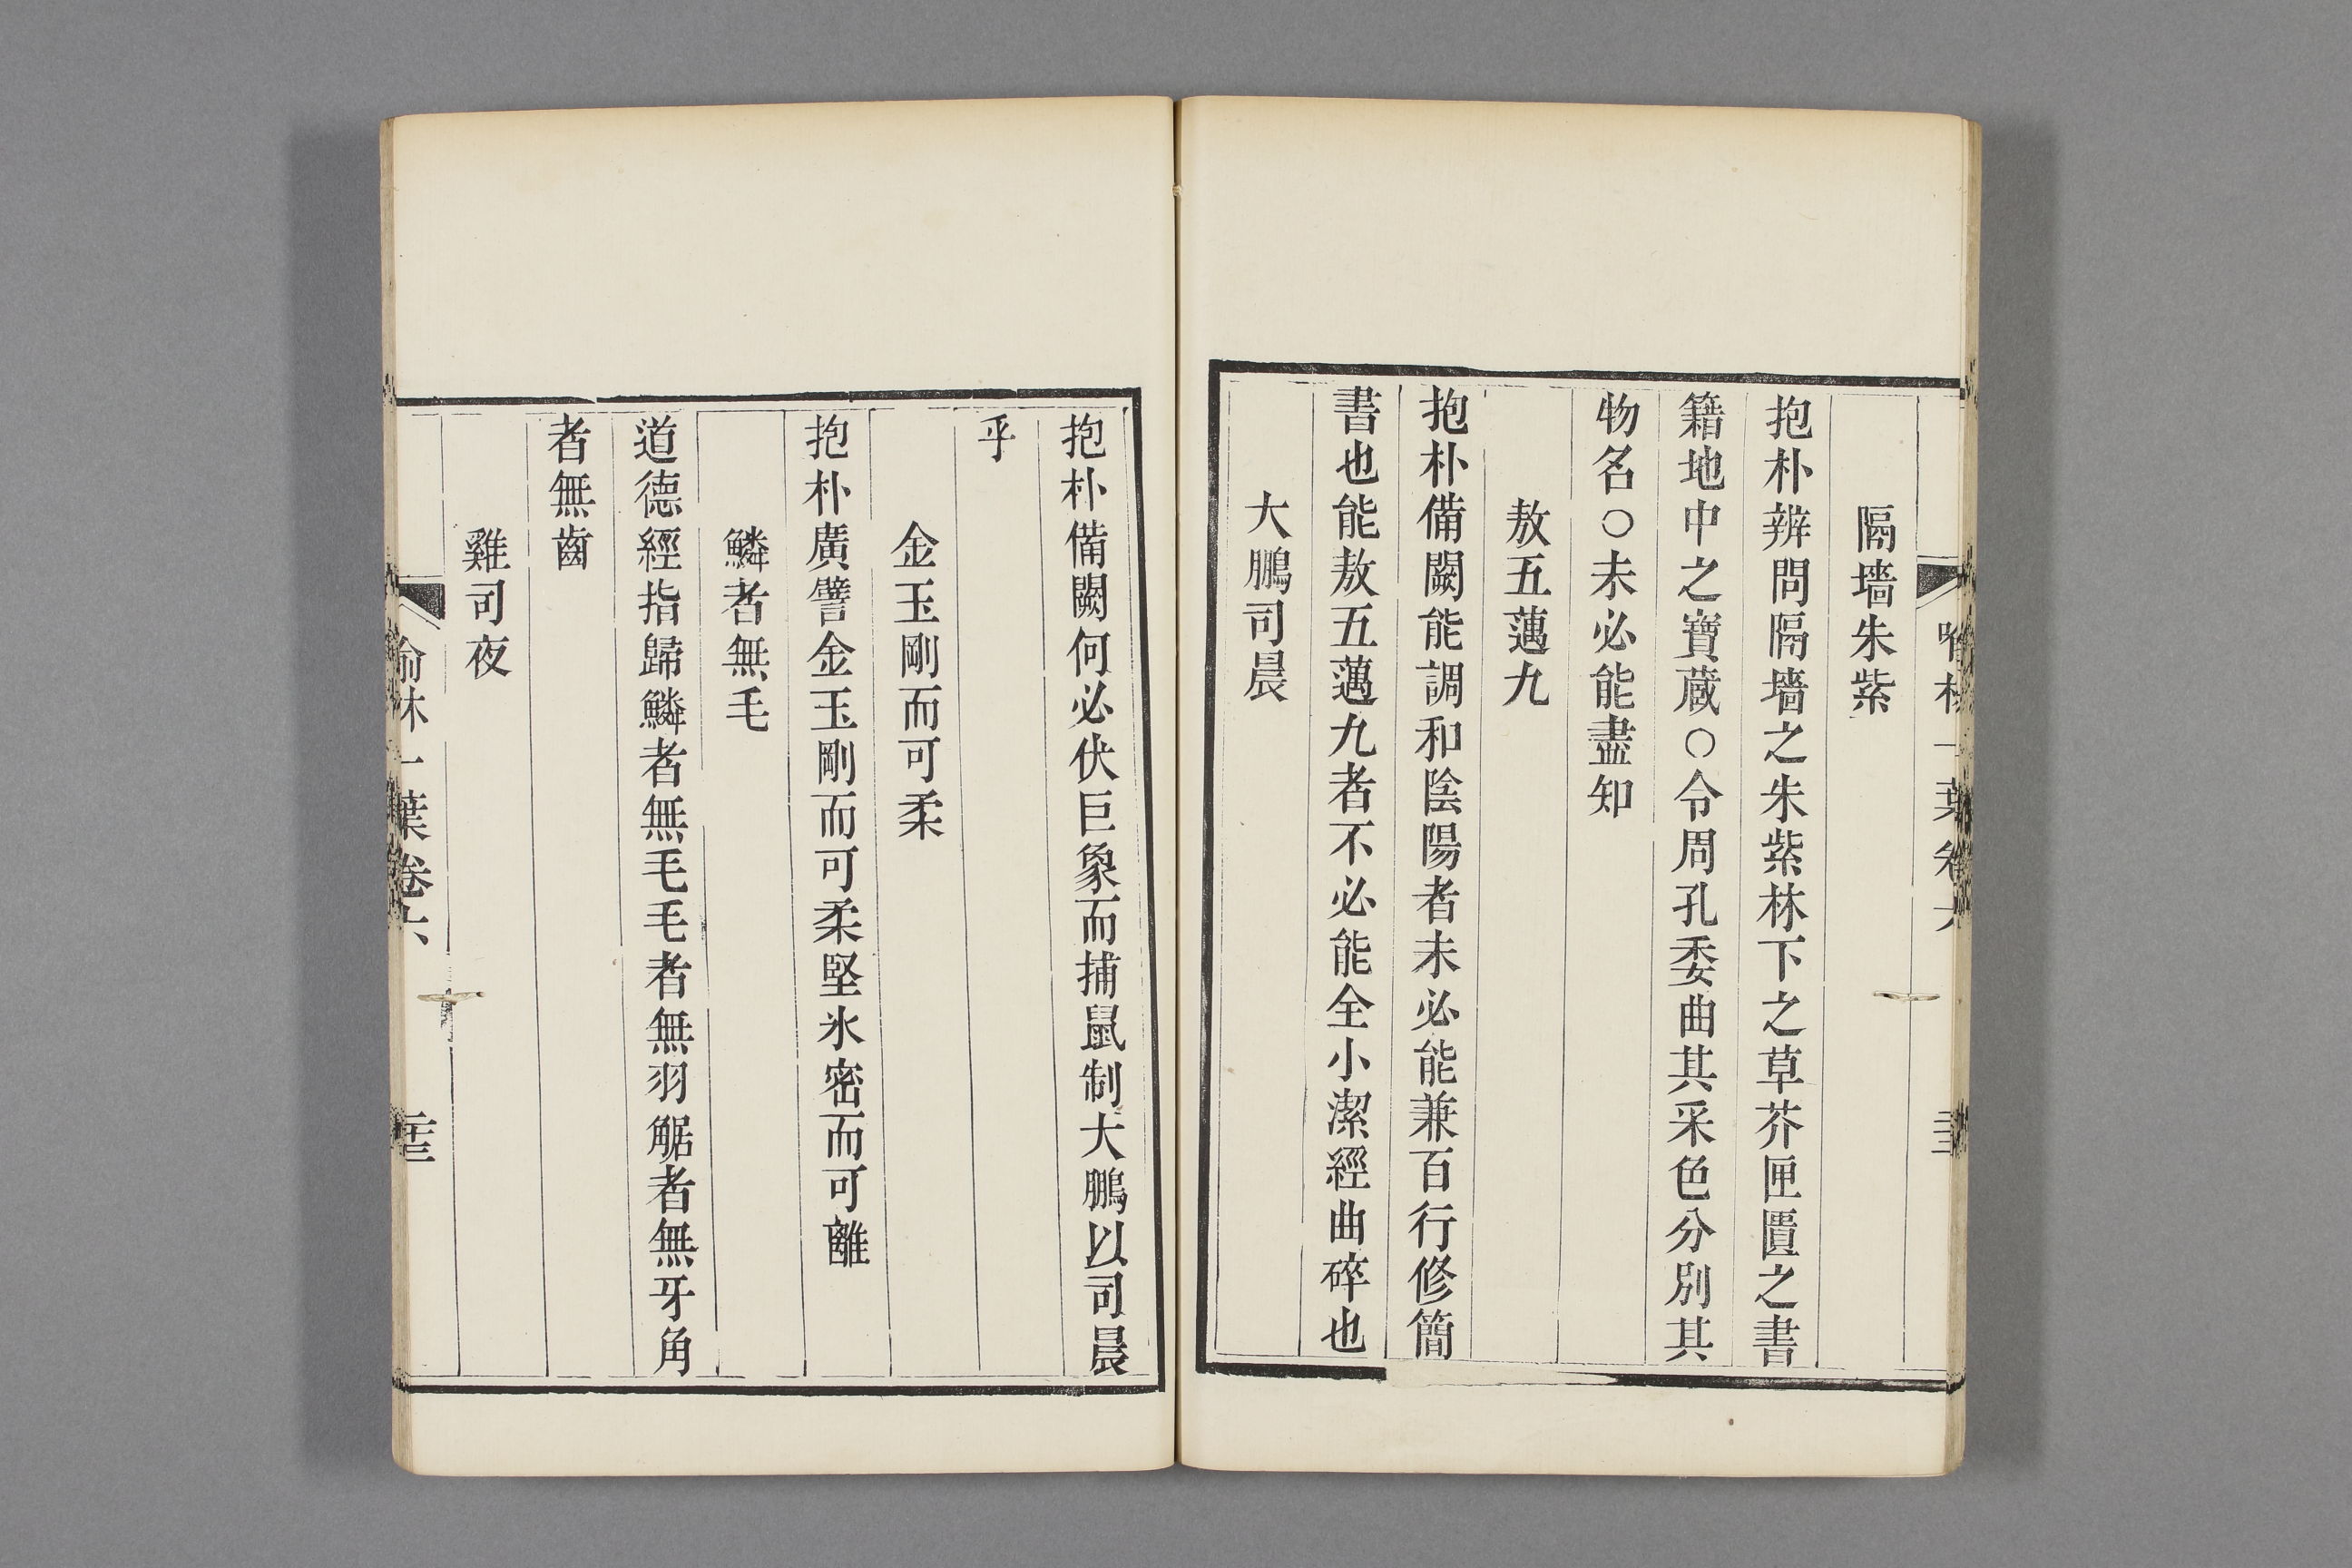 隔墻朱紫
抱朴辨問隔墻之朱紫林下之草芥匣匱之書
籍地中之寶蔵○令周孔委曲其采色分別其
物名○未必能盡知
敖五藊九
抱朴備闕能調和陰陽者未必能兼百行修簡
書也能敖五藊九者不必能全小潔經曲碎也
大鵬司晨
抱朴備闕何必伏巨象而捕鼠制大鵬以司晨
乎
金玉剛而可柔
抱朴廣譬金玉剛而可柔堅氷密而可離
鱗者無毛
道德經指歸鱗者無毛毛者無羽觡者無牙角
者無齒
雞司夜
喻林一葉卷六